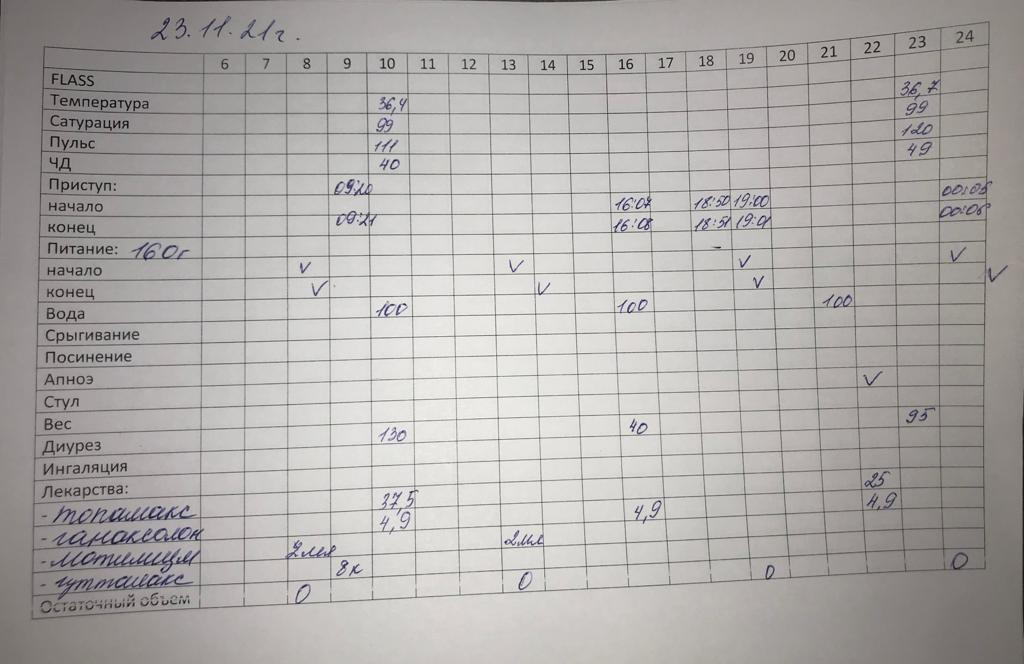 23.11.21г.
6 7 8 9 10 11 12 13 14 15 16 17 18 19 20 21 22 23 24
FLASS
Температура 36,4 36,7
Сатурация 99 99
Пульс 111 120
ЧД 40 49
Приступ:
начало 09:20 16:07 18:50 19:00 00:05
конец 09:21 16:08 18:51 19:01 00:06
Питание: 160г -
начало v v v v
конец v v v v
Вода 100 100 100
Срыгивание
Посинение
Апноэ
Стул v
Вес
Диурез 130 40 95
Ингаляция
Лекарства:
- топамакс 37,5 25
- ганаксолон 4,9 4,9 4,9
- мотилиум 2мл 2мл
- гутталакс 8к
Остаточный объем 0 0 0 0